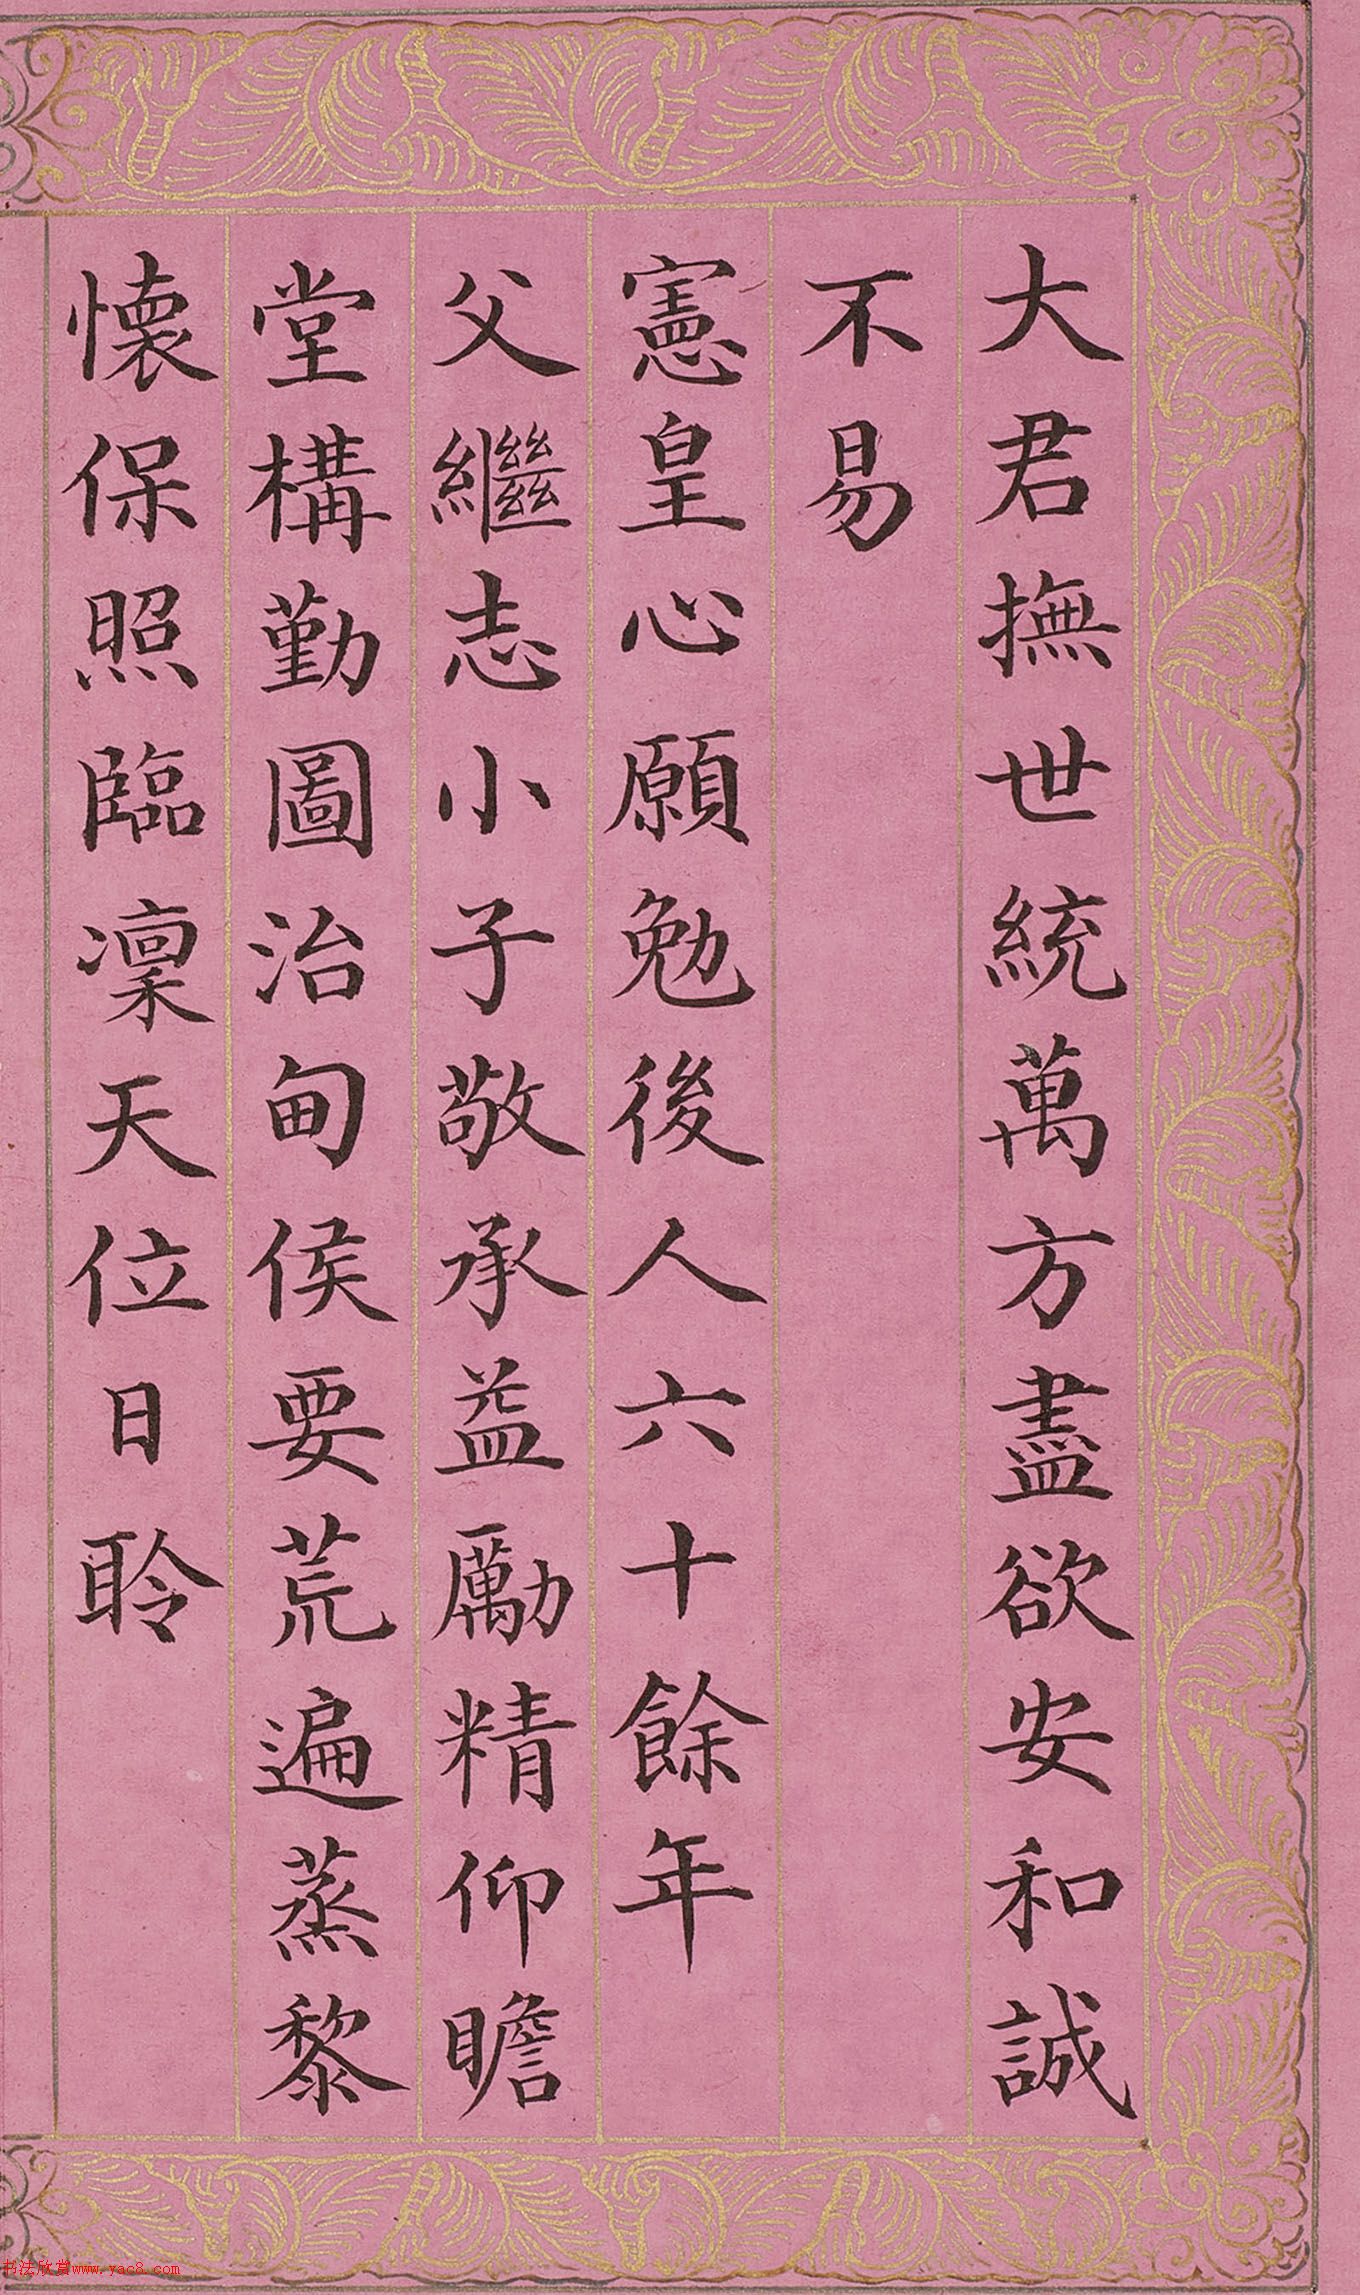 大君撫世統萬方盡欲安和誠
不易
憲皇心願勉後人六十餘年
父繼志小子敬承益勵精仰瞻
堂構勤圖治甸侯要荒遍蒸黎
懷保照臨凜天位日聆
书法欣赏www.yac8.com